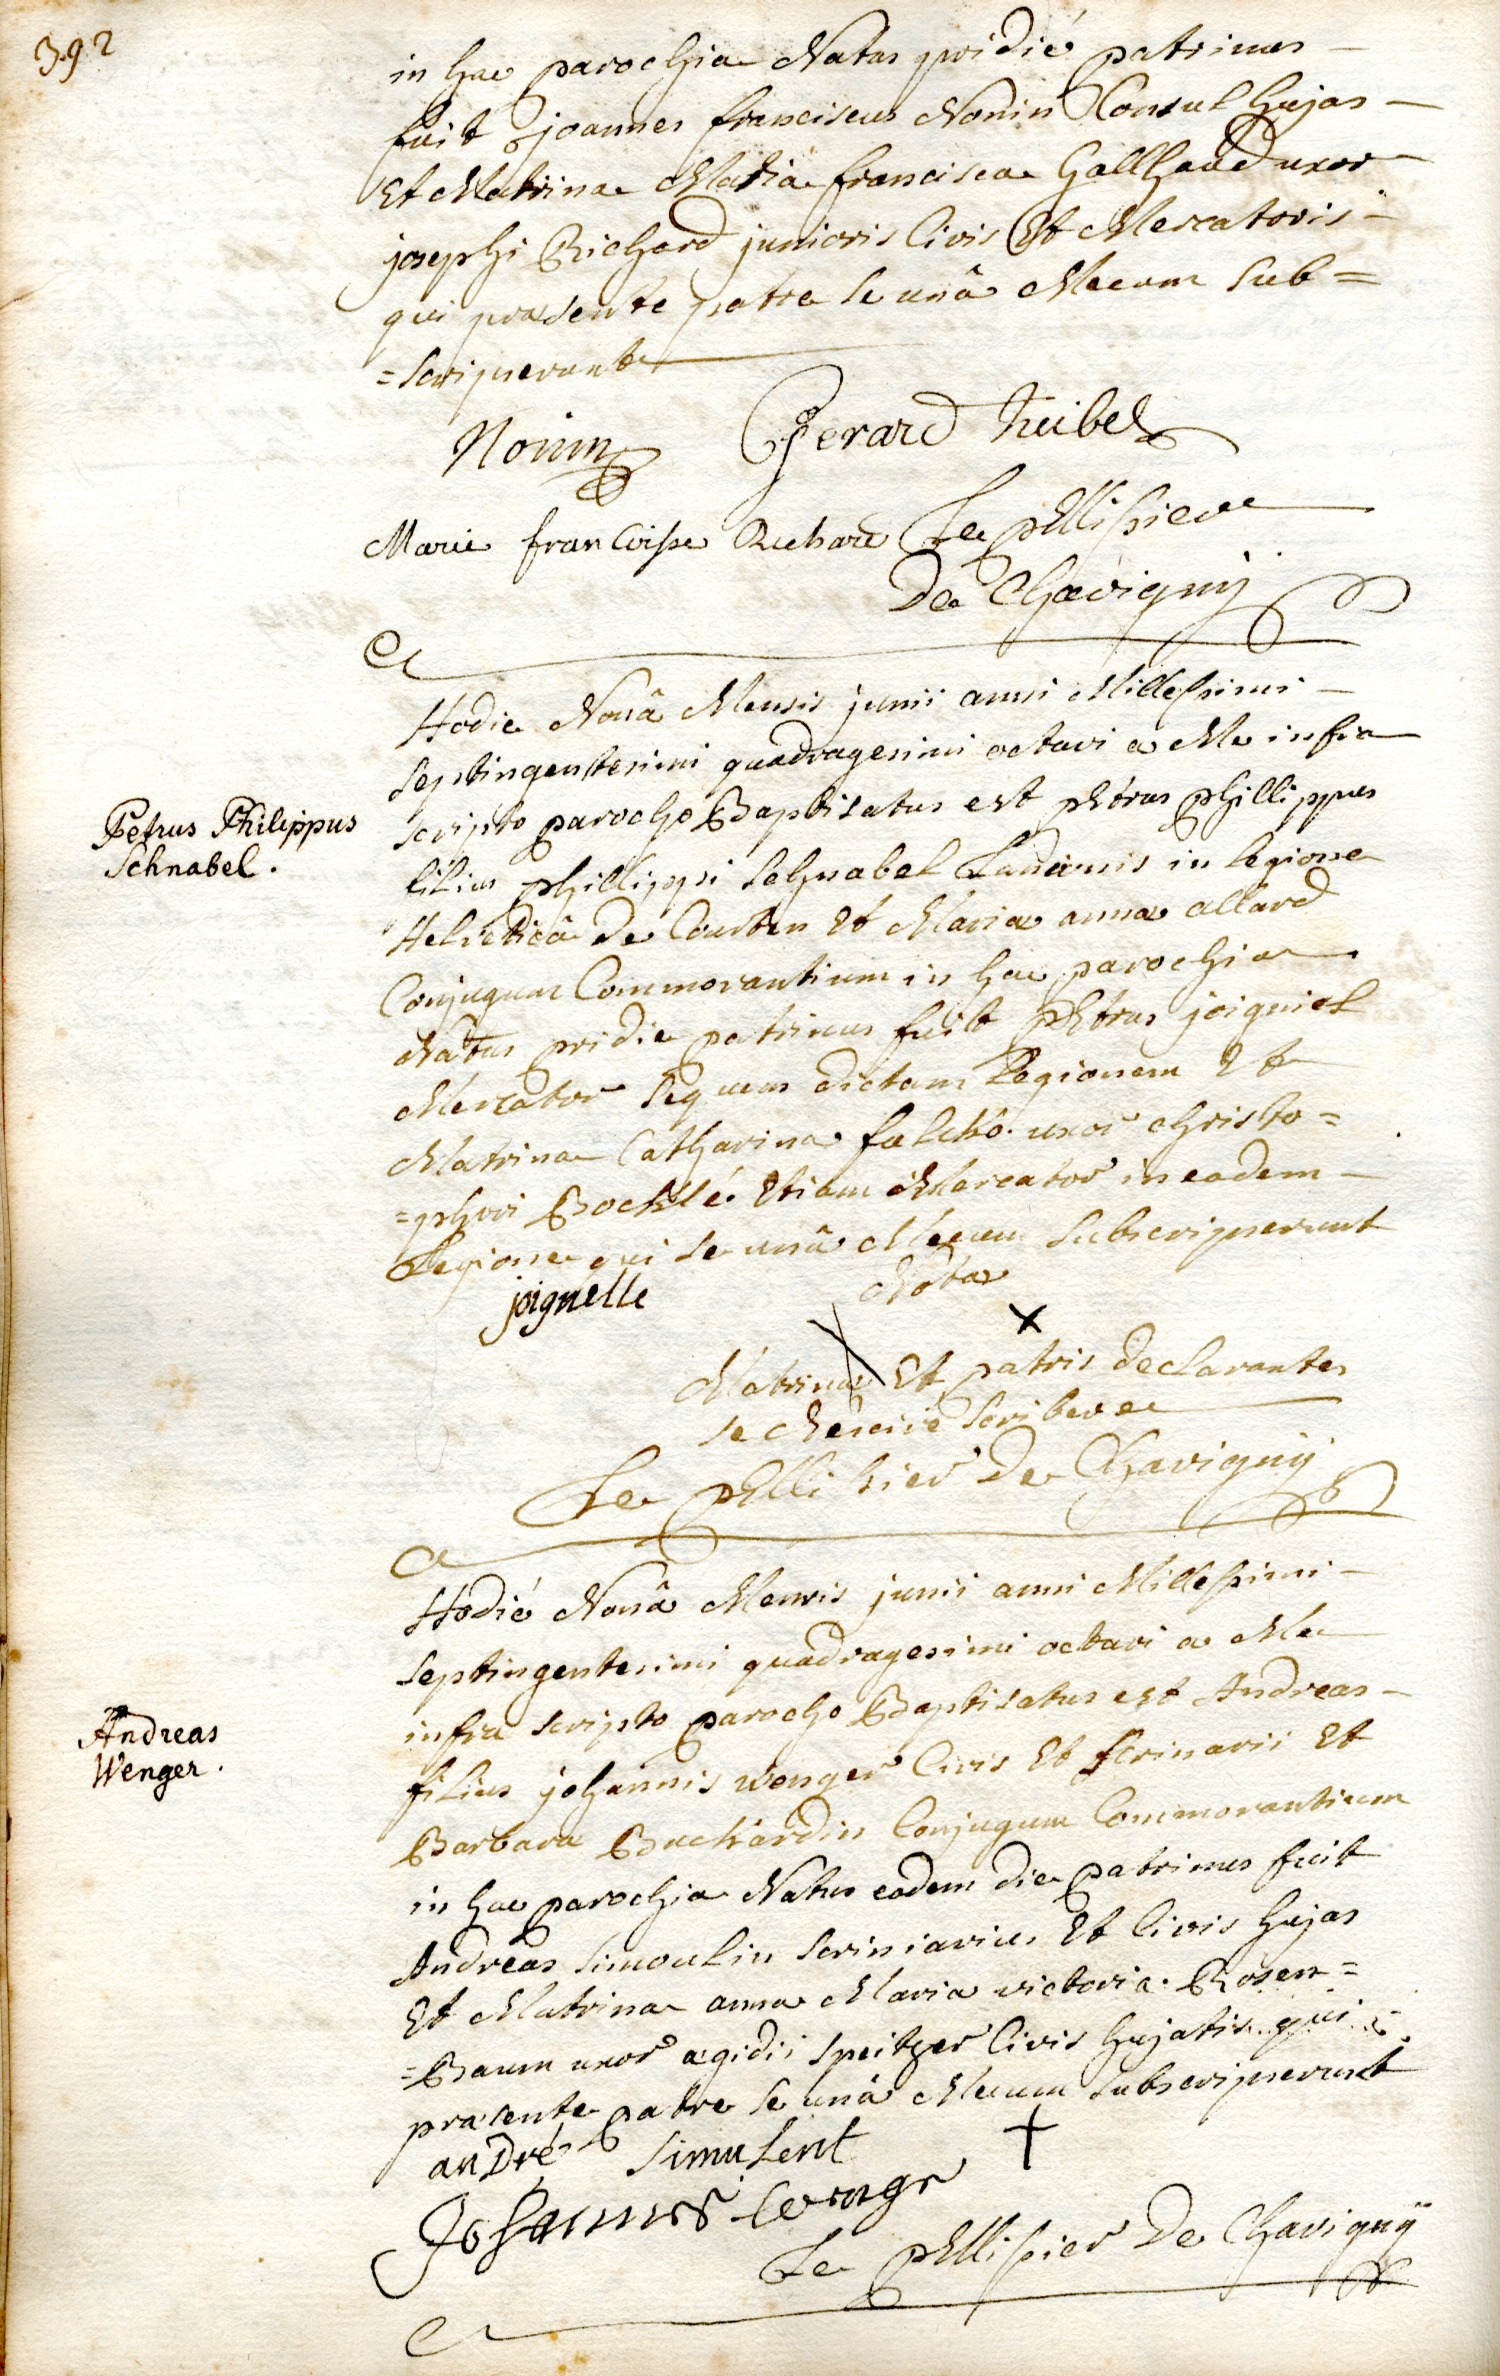 392
in hac parochia Natus pridié patrinus –
fuit joannes franciscus Nonin Consul hujas –
Et Matrina Maria francisca Gallhaud uxor
josephi Richard junioris Civis Et Mercatoris –
qui præsente patre se unâ Mecum sub=
=scripserunt
Nonin Gerard heibel
Marie francoisse Richard Le pEllissier
De Chavignÿ
Hodie Nonâ Mensis junii anni Millessimi –
septingentesimi quadragesimi octavi a Me infra
Petrus Philippus
Schnabel.
scripto parocho Baptisatus est pEtrus phillippus
filius phillippi Schnabel in legione
Helveticâ De Courten Et Maria anna allard
Conjugum Commorantium in hac parochia
Natus pridie patrinus fuit pEtrus joigniel
Mercator sequens dictam Legionem Et
Matrina Catharina falckô uxor christo=
=phori Bocklé Etiam Mercator in eadem –
Legione qui se unâ Mecum subscripserunt
joignelle Nota
X X
Matrina Et patris declarantes
se Nescire scribere
Le pEllissier De Chavignÿ
Hodié Nonâ Mensis junii anni Millessimi –
septingentesimi quadragesimi octavi a Me
infra scripto parocho Baptisatus est Andreas –
Andreas
Wenger.
filius johannis wenger Civis Et scrinarii Et
Barbara Buckardin Conjugum Commorantium
in hac parochia Natus eodem die patrinus fuit
Andreas simoulin scriniarius Et Civis hujas
Et Matrina anna Maria victoria Rosen=
=Baum uxor ægidii speitzer Civis hujatis qui
præsente patre se unâ Mecum subscripserunt
andré simulent +
Johannes
Le pEllissier De Chavignÿ